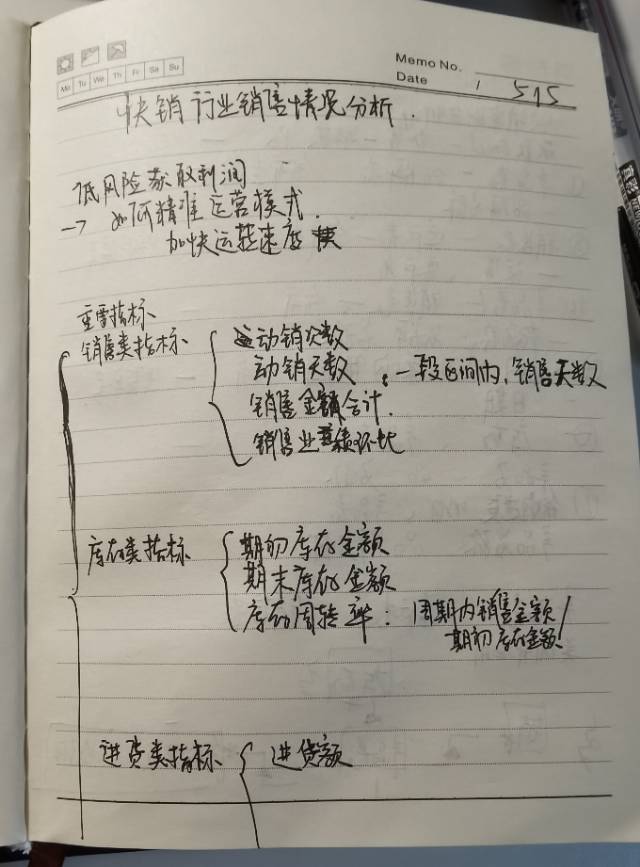 Mo Tu We Th Fr Sa Su
Memo No.
Date 1 515
快销行业销售情况分析.
低风险获取利润
→ 如何精准运营模式.
加快运转速度
重要指标
销售类指标
动销次数
动销天数:一段区间内,销售天数
销售金额合计.
销售业绩环比
库存类指标
期初库存金额
期末库存金额
库存周转率:周期内销售金额/
期初库存金额
进货类指标
进货额